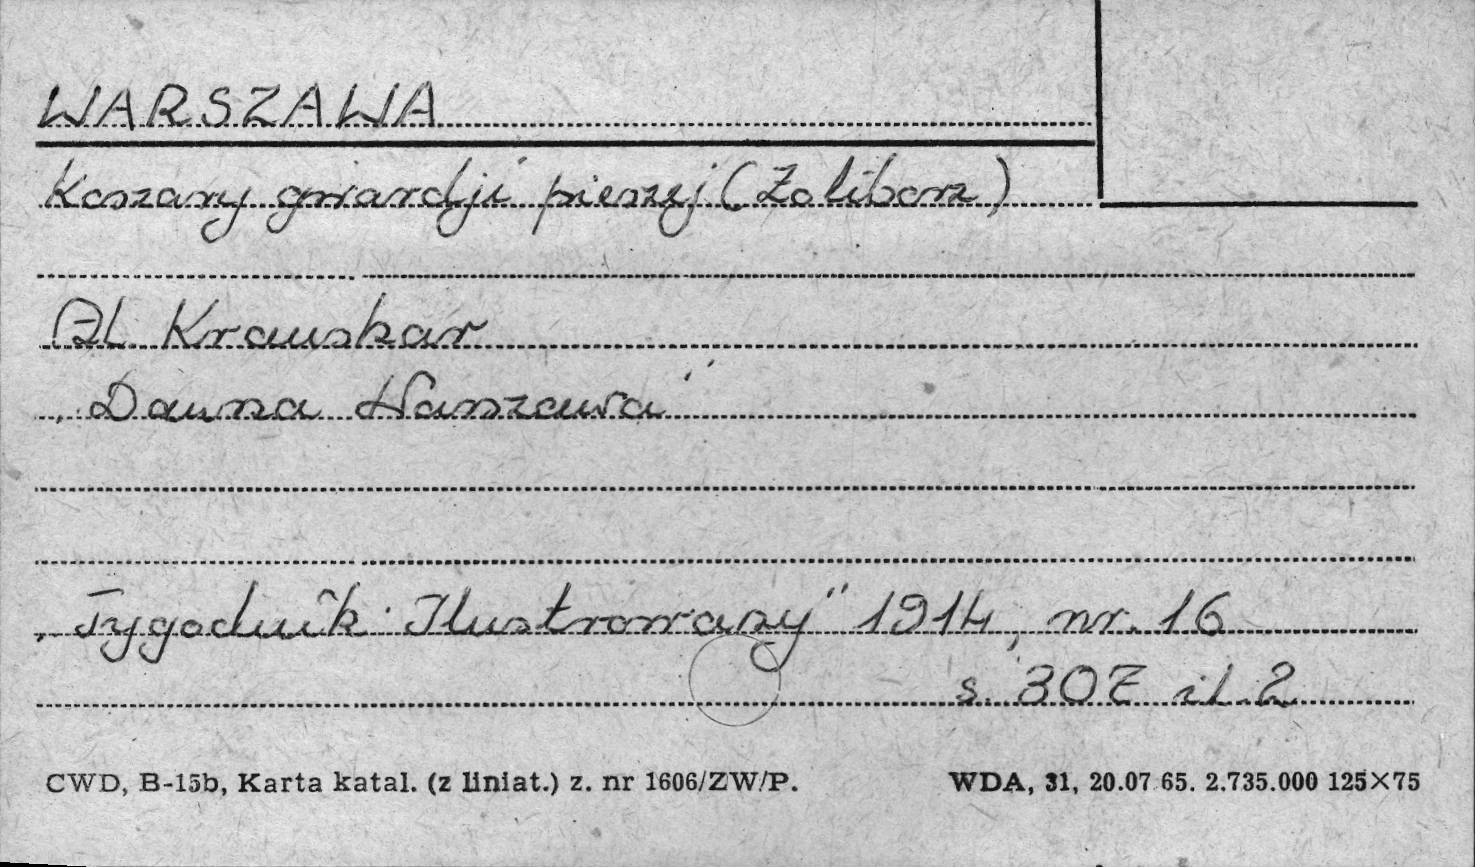 WARSZAWA
Koszary gwardji pieszej (Żoliborz)
Al. Kraushar
„Dawna Warszawa”
„Tygodnik Ilustrowany” 1914, nr. 16
s. 307 il. 2
CWD, B-15b, Karta katal. (z liniat.) z. nr 1606/ZW/P.
WDA, 31, 20.07 65. 2.735.000 125×75